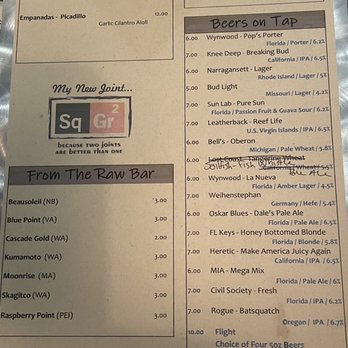 Empanadas - Picadillo 12.00
Garlic Cilantro Aioli
My New Joint...
Sq Gr 2
BECAUSE TWO JOINTS
ARE BETTER THAN ONE
From The Raw Bar
Beausoleil (NB) 3.00
Blue Point (VA) 3.00
Cascade Gold (WA) 2.00
Kumamoto (WA) 3.00
Moonrise (MA) 3.00
Skagitco (WA) 3.00
Raspberry Point (PEI) 3.00
Beers on Tap
6.00 Wynwood - Pop's Porter
Florida / Porter / 6.2%
7.00 Knee Deep - Breaking Bud
California / IPA / 6.5%
6.00 Narragansett - Lager
Rhode Island / Lager / 5%
5.00 Bud Light
Missouri / Lager / 4.2%
7.00 Sun Lab - Pure Sun
Florida / Passion Fruit & Guava Sour / 6.2%
7.00 Leatherback - Reef Life
U.S. Virgin Islands / IPA / 6.5%
6.00 Bell's - Oberon
Michigan / Pale Wheat / 5.8%
Lost Coast - Tangerine Wheat
6.00 Wynwood - La Nueva
Florida / Amber Lager / 4.5%
7.00 Weihenstephan
Germany / Hefe / 5.4%
6.00 Oskar Blues - Dale's Pale Ale
Florida / Pale Ale / 6.5%
7.00 FL Keys - Honey Bottomed Blonde
Florida / Blonde / 5.8%
7.00 Heretic - Make America Juicy Again
California / IPA / 6.5%
6.00 MIA - Mega Mix
Florida / Pale Ale / 6%
7.00 Civil Society - Fresh
Florida / IPA / 6.2%
7.00 Rogue - Batsquatch
Oregon / IPA / 6.7%
10.00 Flight
Choice of Four 5oz Beers